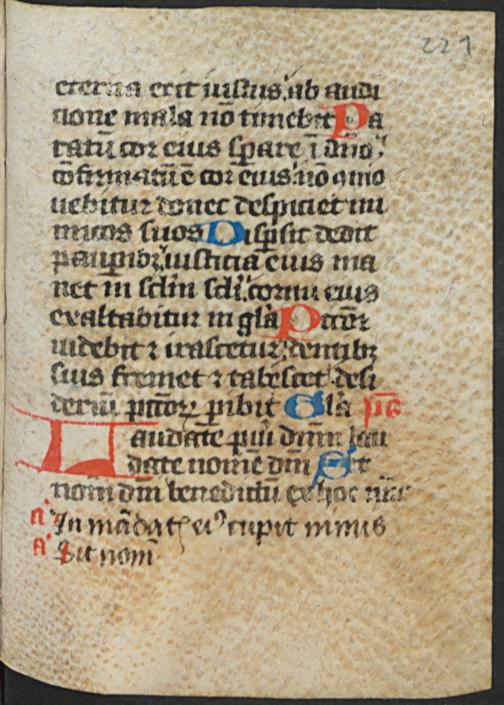 221
eterna erit iustus ab audi
tione mala nō timebit Pa
ratū cor eius sꝑare ī dn̄o
cōfirmatū ē cor eius nō ↄmo
uebitur donec despiciet ini
micos suos Dispsit dedit
pauꝑibꝫ iusticia eius ma
net in sclm scli cornu eius
exaltabitur in gla Pctōr
uidebit ⁊ irascetur dentibꝫ
suis fremet ⁊ tabescet desi
deriū pctōꝝ ꝑibit Gla pͣ
Laudate pūi dn̄m lau
date nomē dn̄i Sit
nom̄ dn̄i benedictū ex hoc
a In mādat eiꝰ cupit nimis
a Sit nom̄